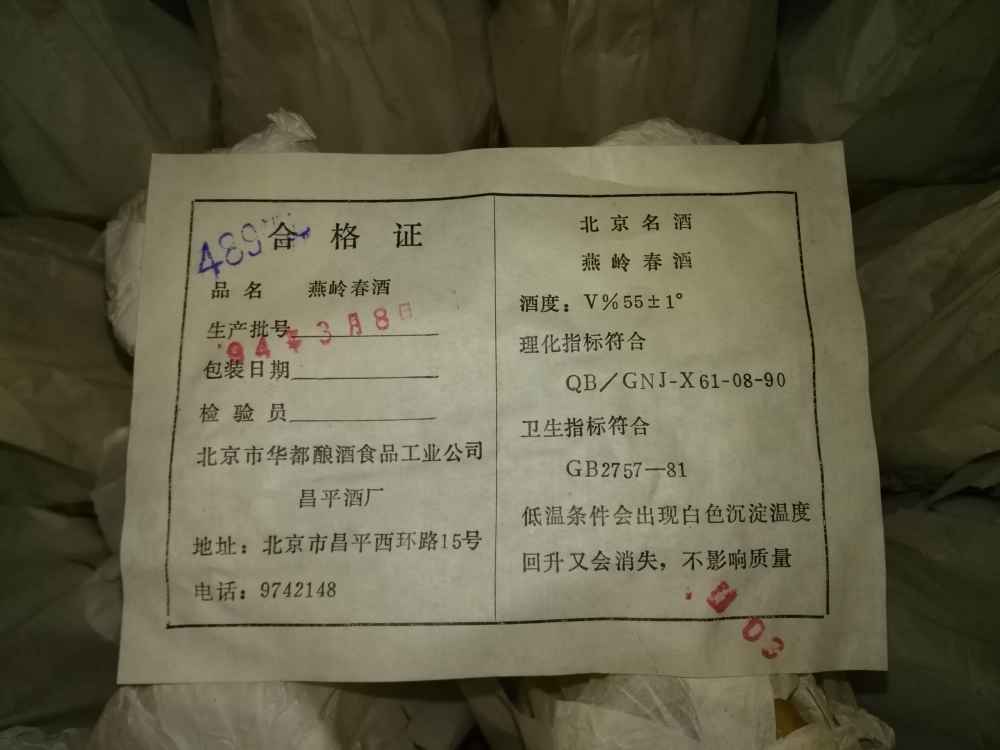 合格证
品名 燕岭春酒
生产批号
94年3月8日
包装日期
检验员
北京市华都酿酒食品工业公司
昌平酒厂
地址：北京市昌平西环路15号
电话：9742148
北京名酒
燕岭春酒
酒度：V％55±1°
理化指标符合
QB／GNJ-X61-08-90
卫生指标符合
GB2757—81
低温条件会出现白色沉淀温度
回升又会消失，不影响质量
03